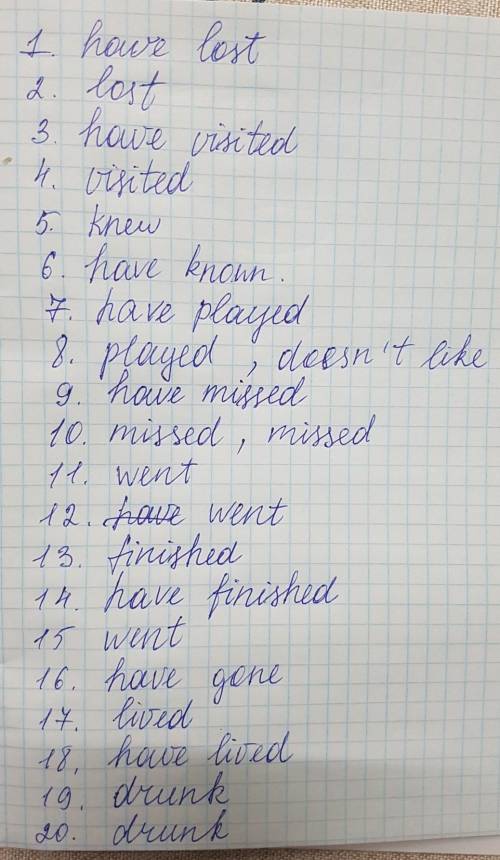 1. have lost
2. lost
3. have visited
4. visited
5. knew
6. have known.
7. have played
8. played , doesn't like
9. have missed
10. missed , missed
11. went
12. have went
13. finished
14. have finished
15 went
16. have gone
17. lived
18, have lived
19. drunk
20. drunk